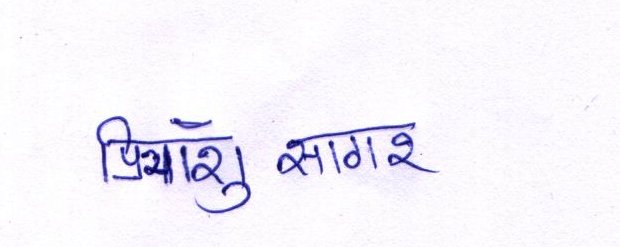 प्रियाँशु सागर